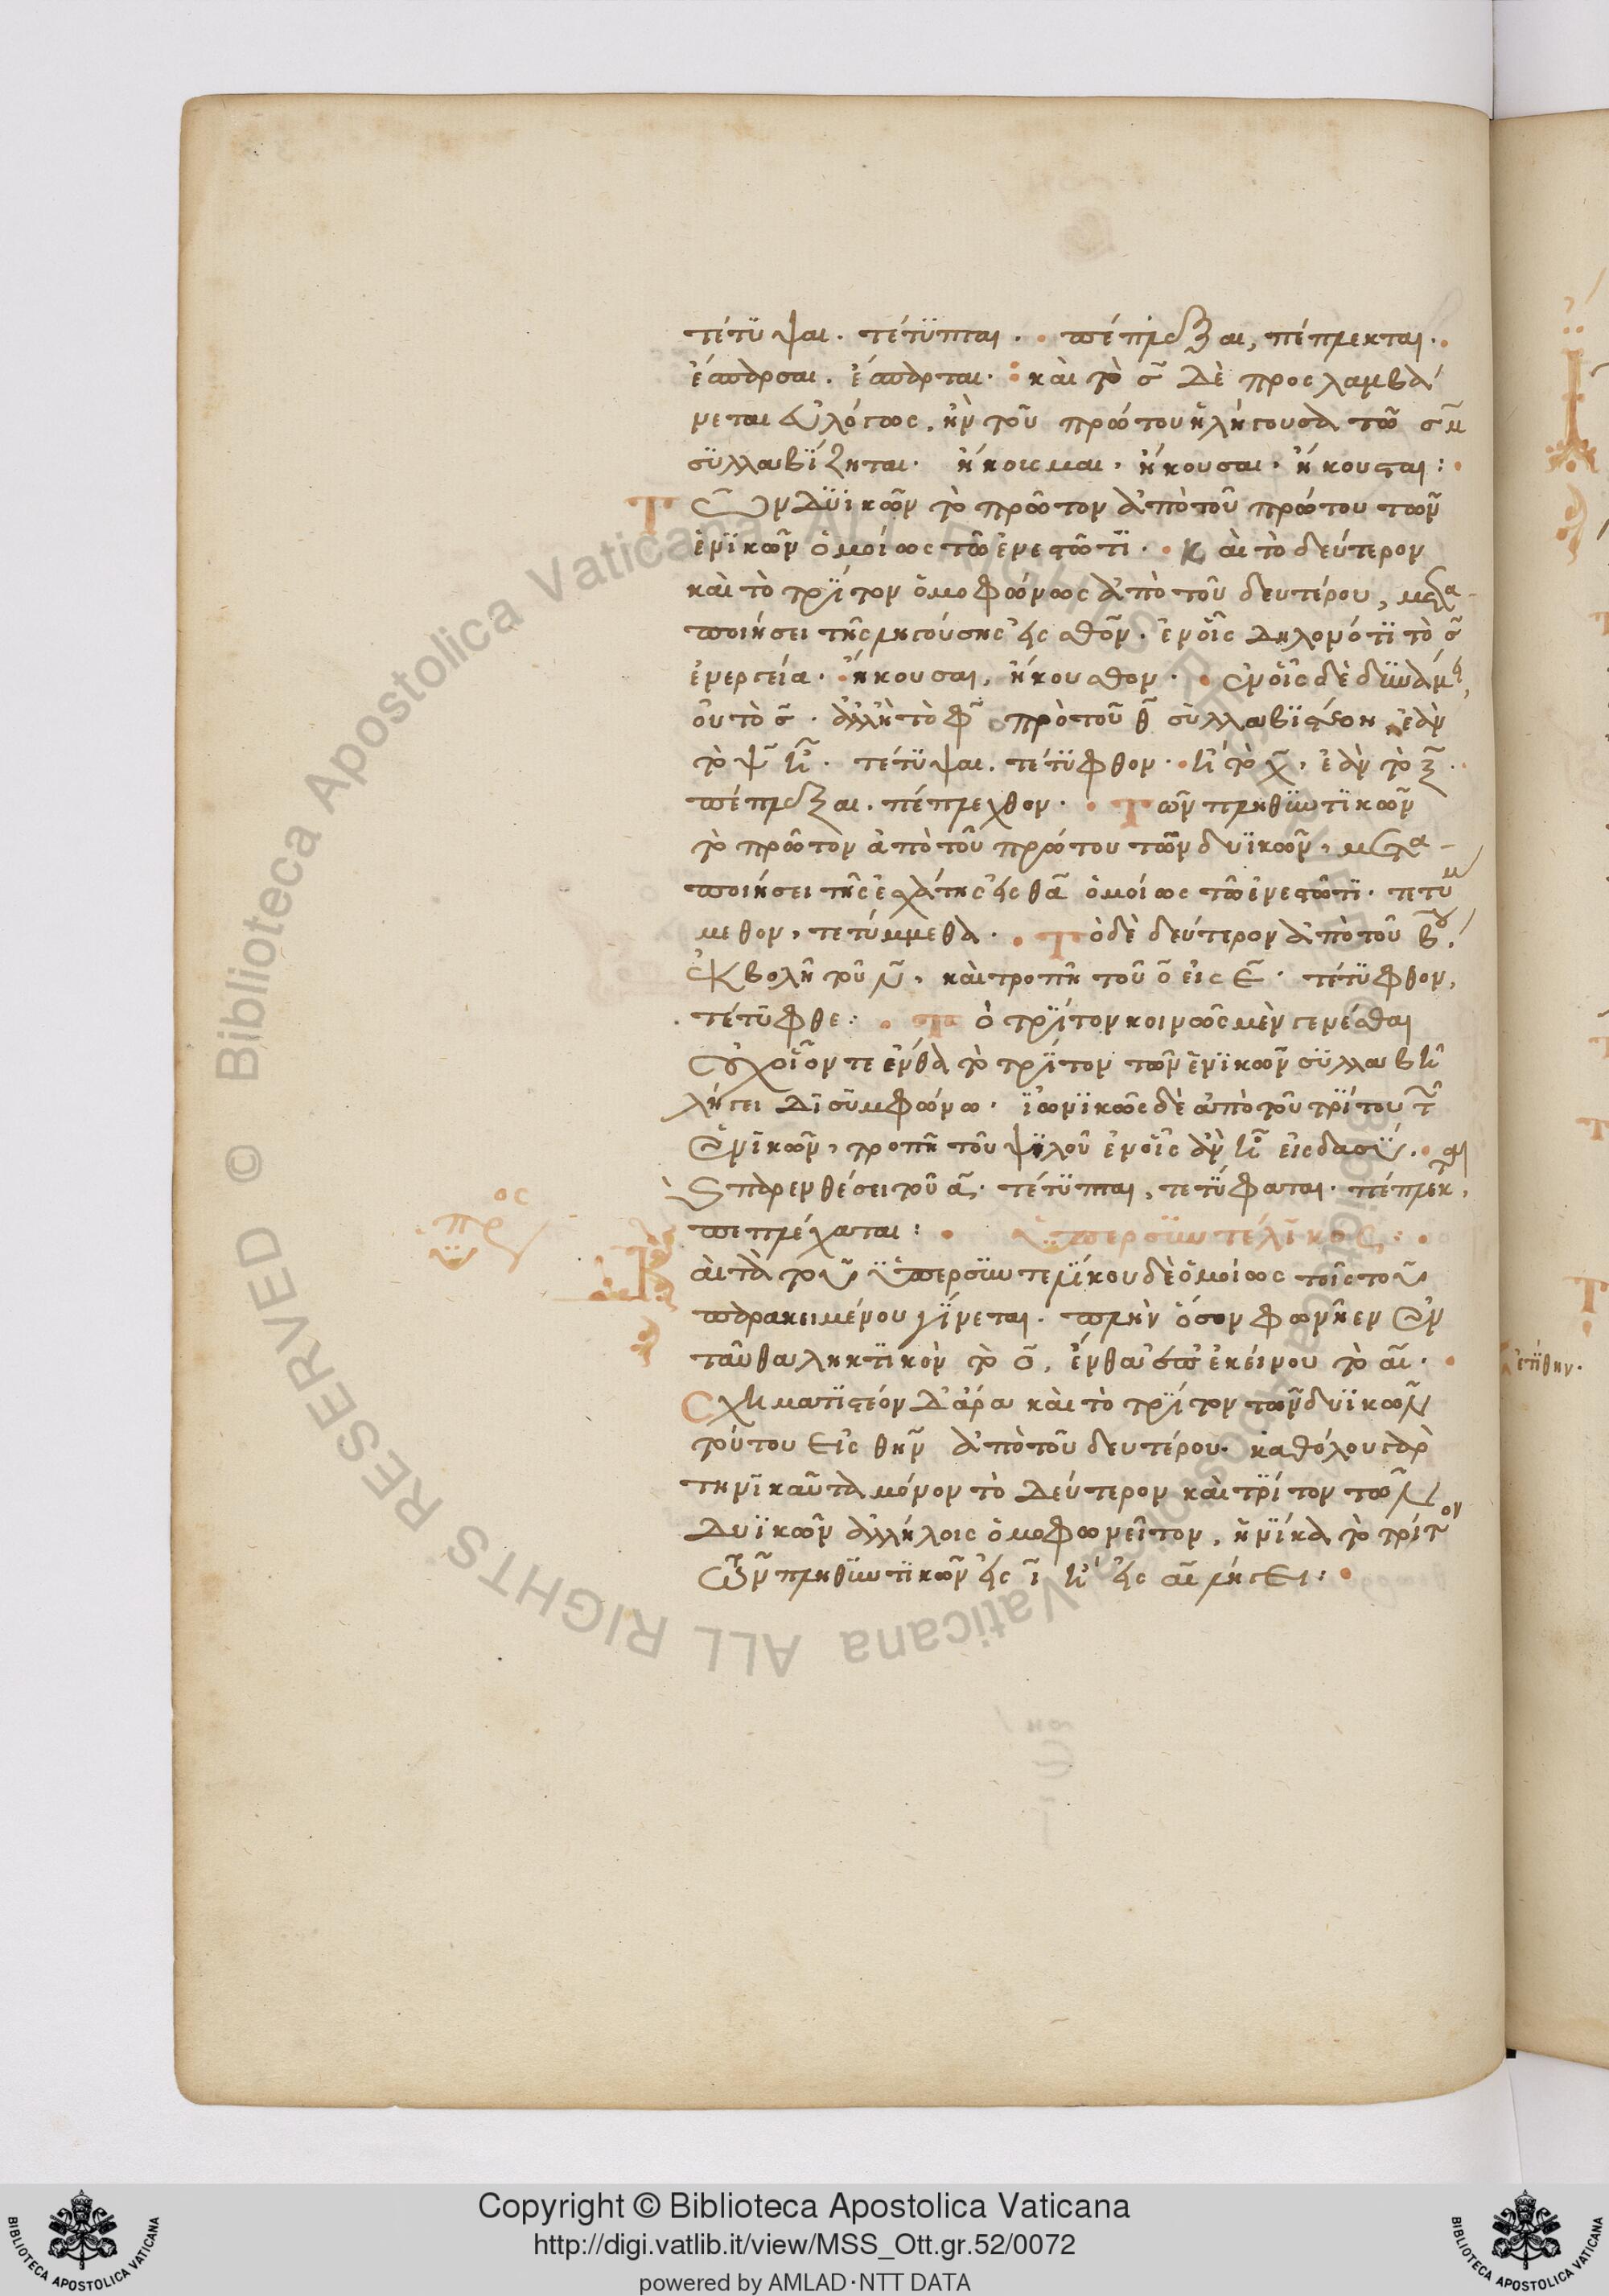 τέτυψαι. τέτυπται. πέπραξαι, πέπρακται.
ἔσπαρσαι. ἔσπαρται. καὶ τὸ σ̄ δὲ προσλαμβά
νεται εὐλόγως, ἢν τοῦ πρώτου ἡ λήγουσα τῶ σ̄μ
συλλαβίζηται. ἤκουσμαι, ἤκουσαι, ἤκουσται:
Τῶν δυϊκῶν τὸ πρῶτον ἀπὸ τοῦ πρώτου τῶν
ἑνικῶν ὁμοίως τῶ ἐνεστῶτι. καὶ τὸ δεύτερον
καὶ τὸ τρίτον ὁμοφώνως ἀπὸ τοῦ δευτέρου, μετα
ποιήσει τῆς ληγούσης εἰς σθον. ἐν οἷς δηλονότι τὸ σ̄
ἐνεργεία. ἤκουσαι, ἤκουσθον. ἐν οἷς δὲ δυνάμει,
οὐ τὸ σ̄. ἀλλ' ἢ τὸ φ̄ πρὸ τοῦ θ̄ συλλαβιστέον ἐὰν
τὸ ψ̄ ἦ. τέτυψαι. τέτυφθον. ἢ τὸ χ̄, ἐὰν τὸ ξ̄.
πέπραξαι. πέπραχθον. Τῶν πληθυντικῶν
τὸ πρῶτον ἀπὸ τοῦ πρώτου τῶν δυϊκῶν, μετα
ποιήσει τῆς ἐσχάτης εἰς θᾱ ὁμοίως τῶ ἐνεστῶτι. τετύμ
μεθον, τετύμμεθα. Τὸ δὲ δεύτερον ἀπὸ τοῦ β̄ου
ἐκβολῆ τοῦ ν̄, καὶ τροπῆ τοῦ ο̄ εἰς ε̄. τέτυφθον,
τέτυφθε: Τὸ τρίτον κοινῶς μὲν γενέσθαι
οὐχ οἷόν τε ἔνθα τὸ τρίτον τῶν ἑνικῶν συλλαβῆ
λήγει δισυμφώνω. ἰωνικῶς δὲ ἀπὸ τοῦ τρίτου τῶν
ἑνικῶν, τροπῆ τοῦ ψιλοῦ ἐν οἷς ἂν ἦ εἰς δασύ.
παρενθέσει τοῦ ᾱ. τέτυπται, τετύφαται. πέπρακται,
πεπράχαται: ὑπερσυντέλικος:
Καὶ τὰ τοῦ ὑπερσυντελίκου δὲ ὁμοίως τοῖς τοῦ
παρακειμένου γίνεται. πλὴν ὅσον φωνῆεν ἐν
ταῦθα ληκτικὸν τὸ ο̄, ἔνθα ἐπ' ἐκείνου τὸ αῑ.
Σχηματιστέον δ' ἄρα καὶ τὸ τρίτον τῶν δυϊκῶν
τούτου εἰς θην ἀπὸ τοῦ δευτέρου. καθόλου γὰρ
τηνικαῦτα μόνον τὸ δεύτερον καὶ τρίτον τῶν
δυϊκῶν ἀλλήλοις ὁμοφωνεῖτον, ἡνίκα τὸ τρίτον
τῶν πληθυντικῶν εἰς ῑ ἢ εἰς αῑ λήγει:
Copyright © Biblioteca Apostolica Vaticana
http://digi.vatlib.it/view/MSS_Ott.gr.52/0072
powered by AMLAD·NTT DATA